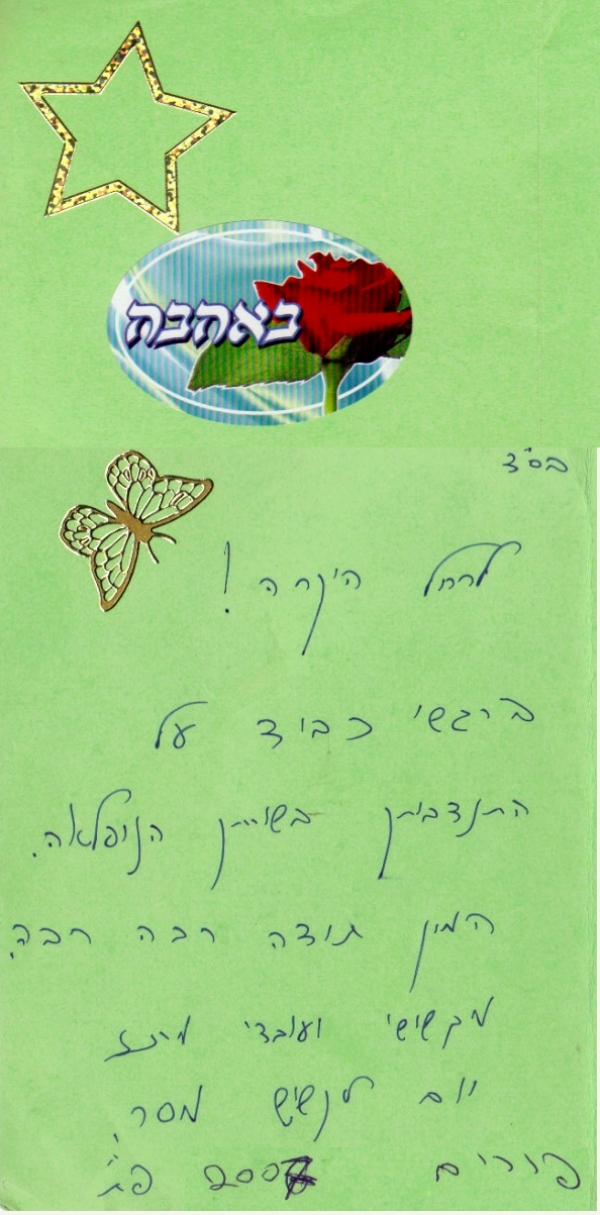 באהבה
בס"ד
לרחל היקרה!
ברגשי כבוד על
התנדבותך בשירותך הנפלאה.
המון תודה רבה רבה,
מקשישי ועובדי מרכז
יום לקשיש
פורים 2007